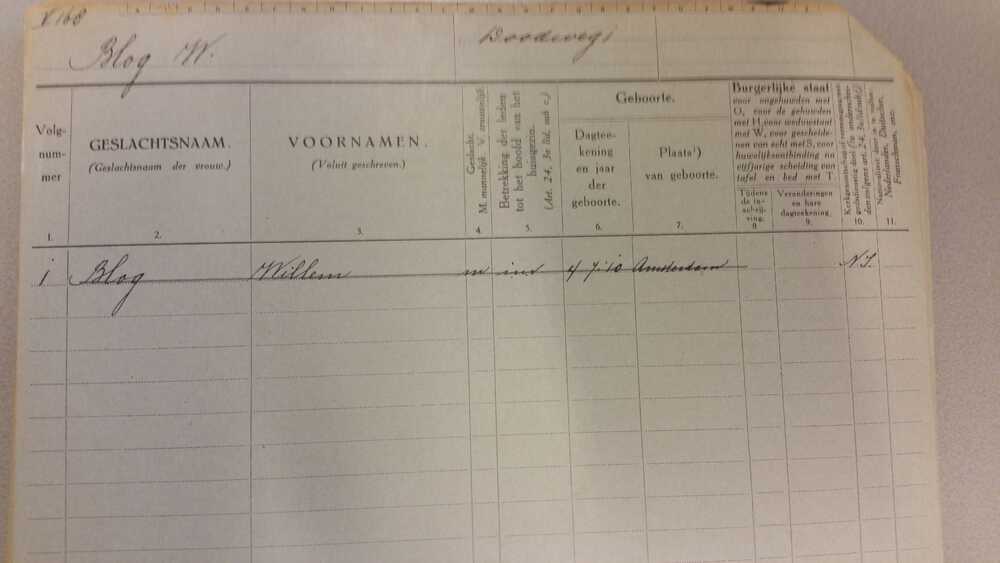 V 168
Blog W.
Volg-
num-
mer
GESLACHTSNAAM.
(Geslachtsnaam der vrouw.)
VOORNAMEN.
(Voluit geschreven.)
Geslacht.
M. mannelijk V. vrouwelijk.
Betrekking der leden
tot het hoofd van het
huisgezin.
(Art. 24, 3e lid, sub c.)
Geboorte.
Dagtee-
kening
en jaar
der
geboorte.
Plaats¹)
van geboorte.
Burgerlijke staat
voor ongehuwden met
O, voor de gehuwden
met H, voor weduwstaat
met W, voor gescheide-
nen van echt met S, voor
huwelijksontbinding na
vijfjarige scheiding van
tafel en bed met T.
Tijdens
de in-
schrij-
ving.
Veranderingen
en hare
dagteekening.
1.
2.
3.
4.
5.
6.
7.
8
9.
10.
11.
1 Blog Willem m inw 4 7 '10 Amsterdam N.I.